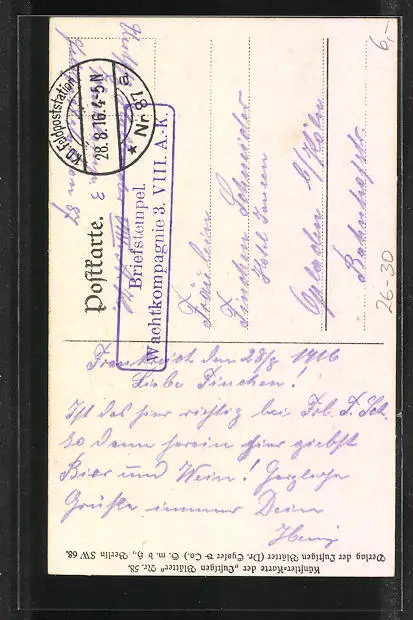 K.D. Feldpoststation
28.8.16. 4-5 N
* Nr. 87 a
Postkarte.
Briefstempel.
Wachtkompagnie 3. VIII. A.-K.
Fräulein
Tinchen Schneider
Hotel
Opladen b/Köln
Bahnhofstr.
6,-
26-30
Frankreich den 28/8 1916
Liebe Tinchen!
Ist das hier richtig bei Frl. T. Sch.
So dann herein hier giebst
Bier und Wein! Herzliche
Grüße immer Dein
Künstler-Karte der „Lustigen Blätter“ Nr. 58.
Verlag der Lustigen Blätter (Dr. Eysler & Co.) G. m. b. H., Berlin SW 68.